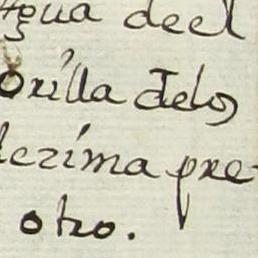 agua deel
orilla Delos
decima pre-
otro.